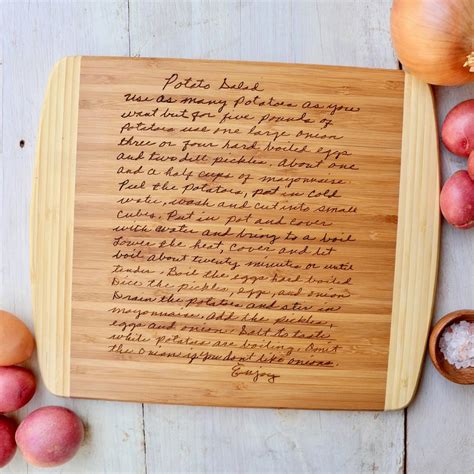 Potato Salad
Use as many potatoes as you
want but for five pounds of
potatoes use one large onion
three or four hard boiled eggs
and two dill pickles. About one
and a half cups of mayonnaise
Peel the potatoes, put in cold
water, wash and cut into small
cubes. Put in pot and cover
with water and bring to a boil
Lower the heat, cover and let
boil about twenty minutes or until
tender. Boil the eggs hard boiled
Dice the pickles, eggs, and onion
Drain the potatoes and stir in
mayonnaise, add the pickles,
eggs and onion. Salt to taste
while potatoes are boiling. Omit
the onion if you don't like onions.
Enjoy